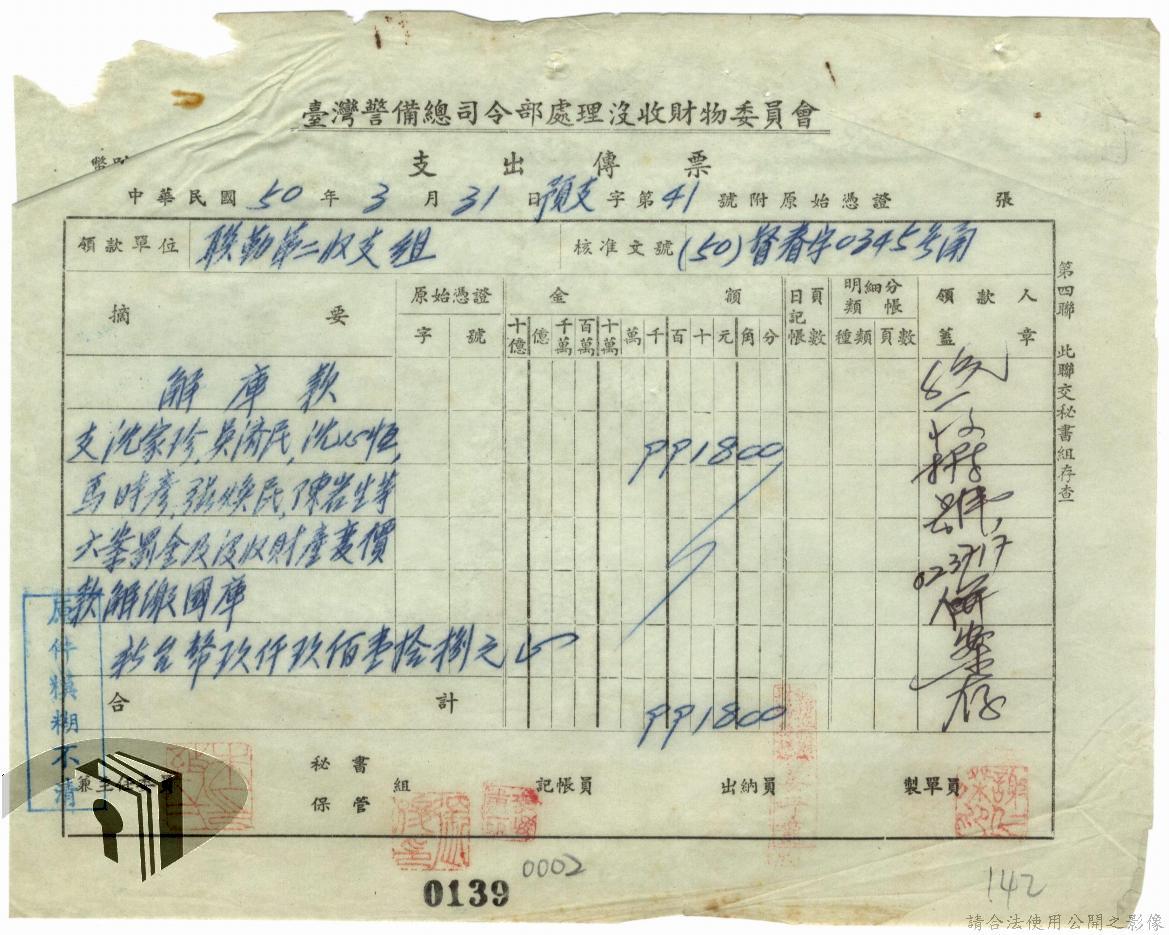 臺灣警備總司令部處理沒收財物委員會
幣別
支出傳票
中華民國50年3月31日預支字第41號附原始憑證 張
領款單位 聯勤第二收支組 核准文號 (50)督春字0345號南
摘要 原始憑證 金額 日記帳頁數 明細分類帳 領款人蓋章
字 號 十億 億 千萬 百萬 十萬 萬 千 百 十 元 角 分 種類 頁數
解庫款
支沈家珍,吳濟民,沈心恒, 991800
馬時彥,張煥民,陳岩生等
六案罰金及沒收財產變價
款解繳國庫
新台幣玖仟玖佰壹拾捌元正
合計 991800
兼主任委員 秘書 保管 組 記帳員 出納員 製單員
第四聯 此聯交秘書組存查
原件模糊不清
0002
0139
142
請合法使用公開之影像